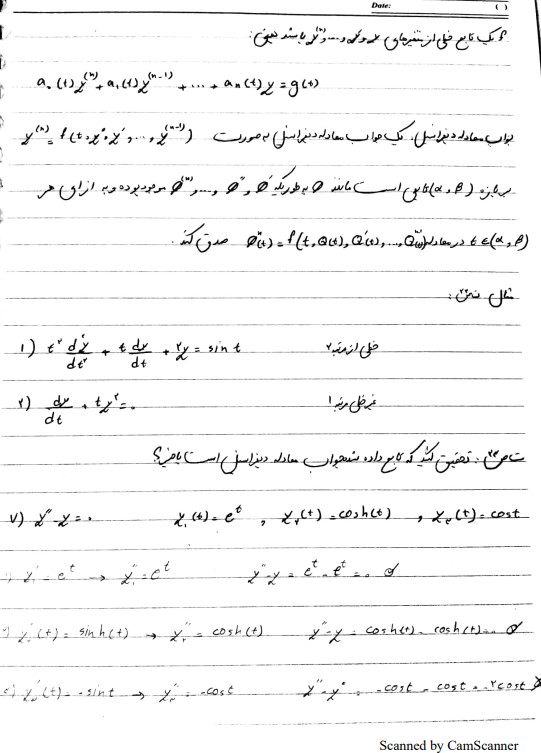 Date: ( )
یک تابع خطی از متغیرهای y و y' و ... و y⁽ⁿ⁾ باشد یعنی:
a₀(t)y⁽ⁿ⁾ + a₁(t)y⁽ⁿ⁻¹⁾ + ... + aₙ(t)y = g(t)
جواب معادله دیفرانسیل: یک جواب معادله دیفرانسیل به صورت y⁽ⁿ⁾ = f(t, y, y', ..., y⁽ⁿ⁻¹⁾)
بر بازه (α, β) تابعی است مانند Ø به طوریکه Ø' و Ø'' و ... و Ø⁽ⁿ⁾ موجود بوده و به ازای هر
t ∈ (α, β) در معادله صدق کند.
مثال
۱) t² d²y/dt² + t dy/dt + ۲y = sin t خطی از مرتبه ۲
۲) dy/dt + ty² = ۰ غیرخطی مرتبه ۱
تحقیق کنید که تابع داده شده جواب معادله دیفرانسیل است یا خیر؟
۷) y'' - y = ۰ y₁(t) = eᵗ , y₂(t) = cosh(t) , y₃(t) = cost
۱) y₁' = eᵗ → y₁'' = eᵗ y'' - y = eᵗ - eᵗ = ۰ ✓
۲) y₂'(t) = sinh(t) → y₂'' = cosh(t) y'' - y = cosh(t) - cosh(t) = ۰ ✓
۳) y₃'(t) = -sint → y₃'' = -cost y'' - y = -cost - cost = -۲cost ✗
Scanned by CamScanner